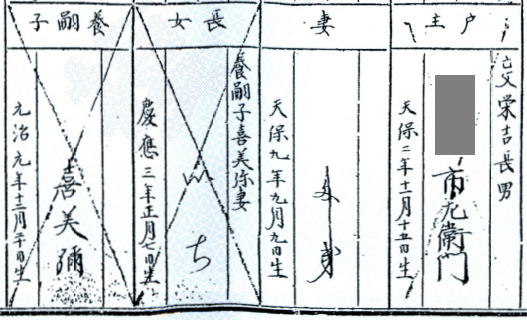 戸主
亡父栄吉長男
市左衛門
天保二年十二月十五日生
妻
天保九年九月九日生
長女
養嗣子喜美弥妻
ち
慶應三年正月七日生
養嗣子
喜美彌
元治元年十二月廿日生